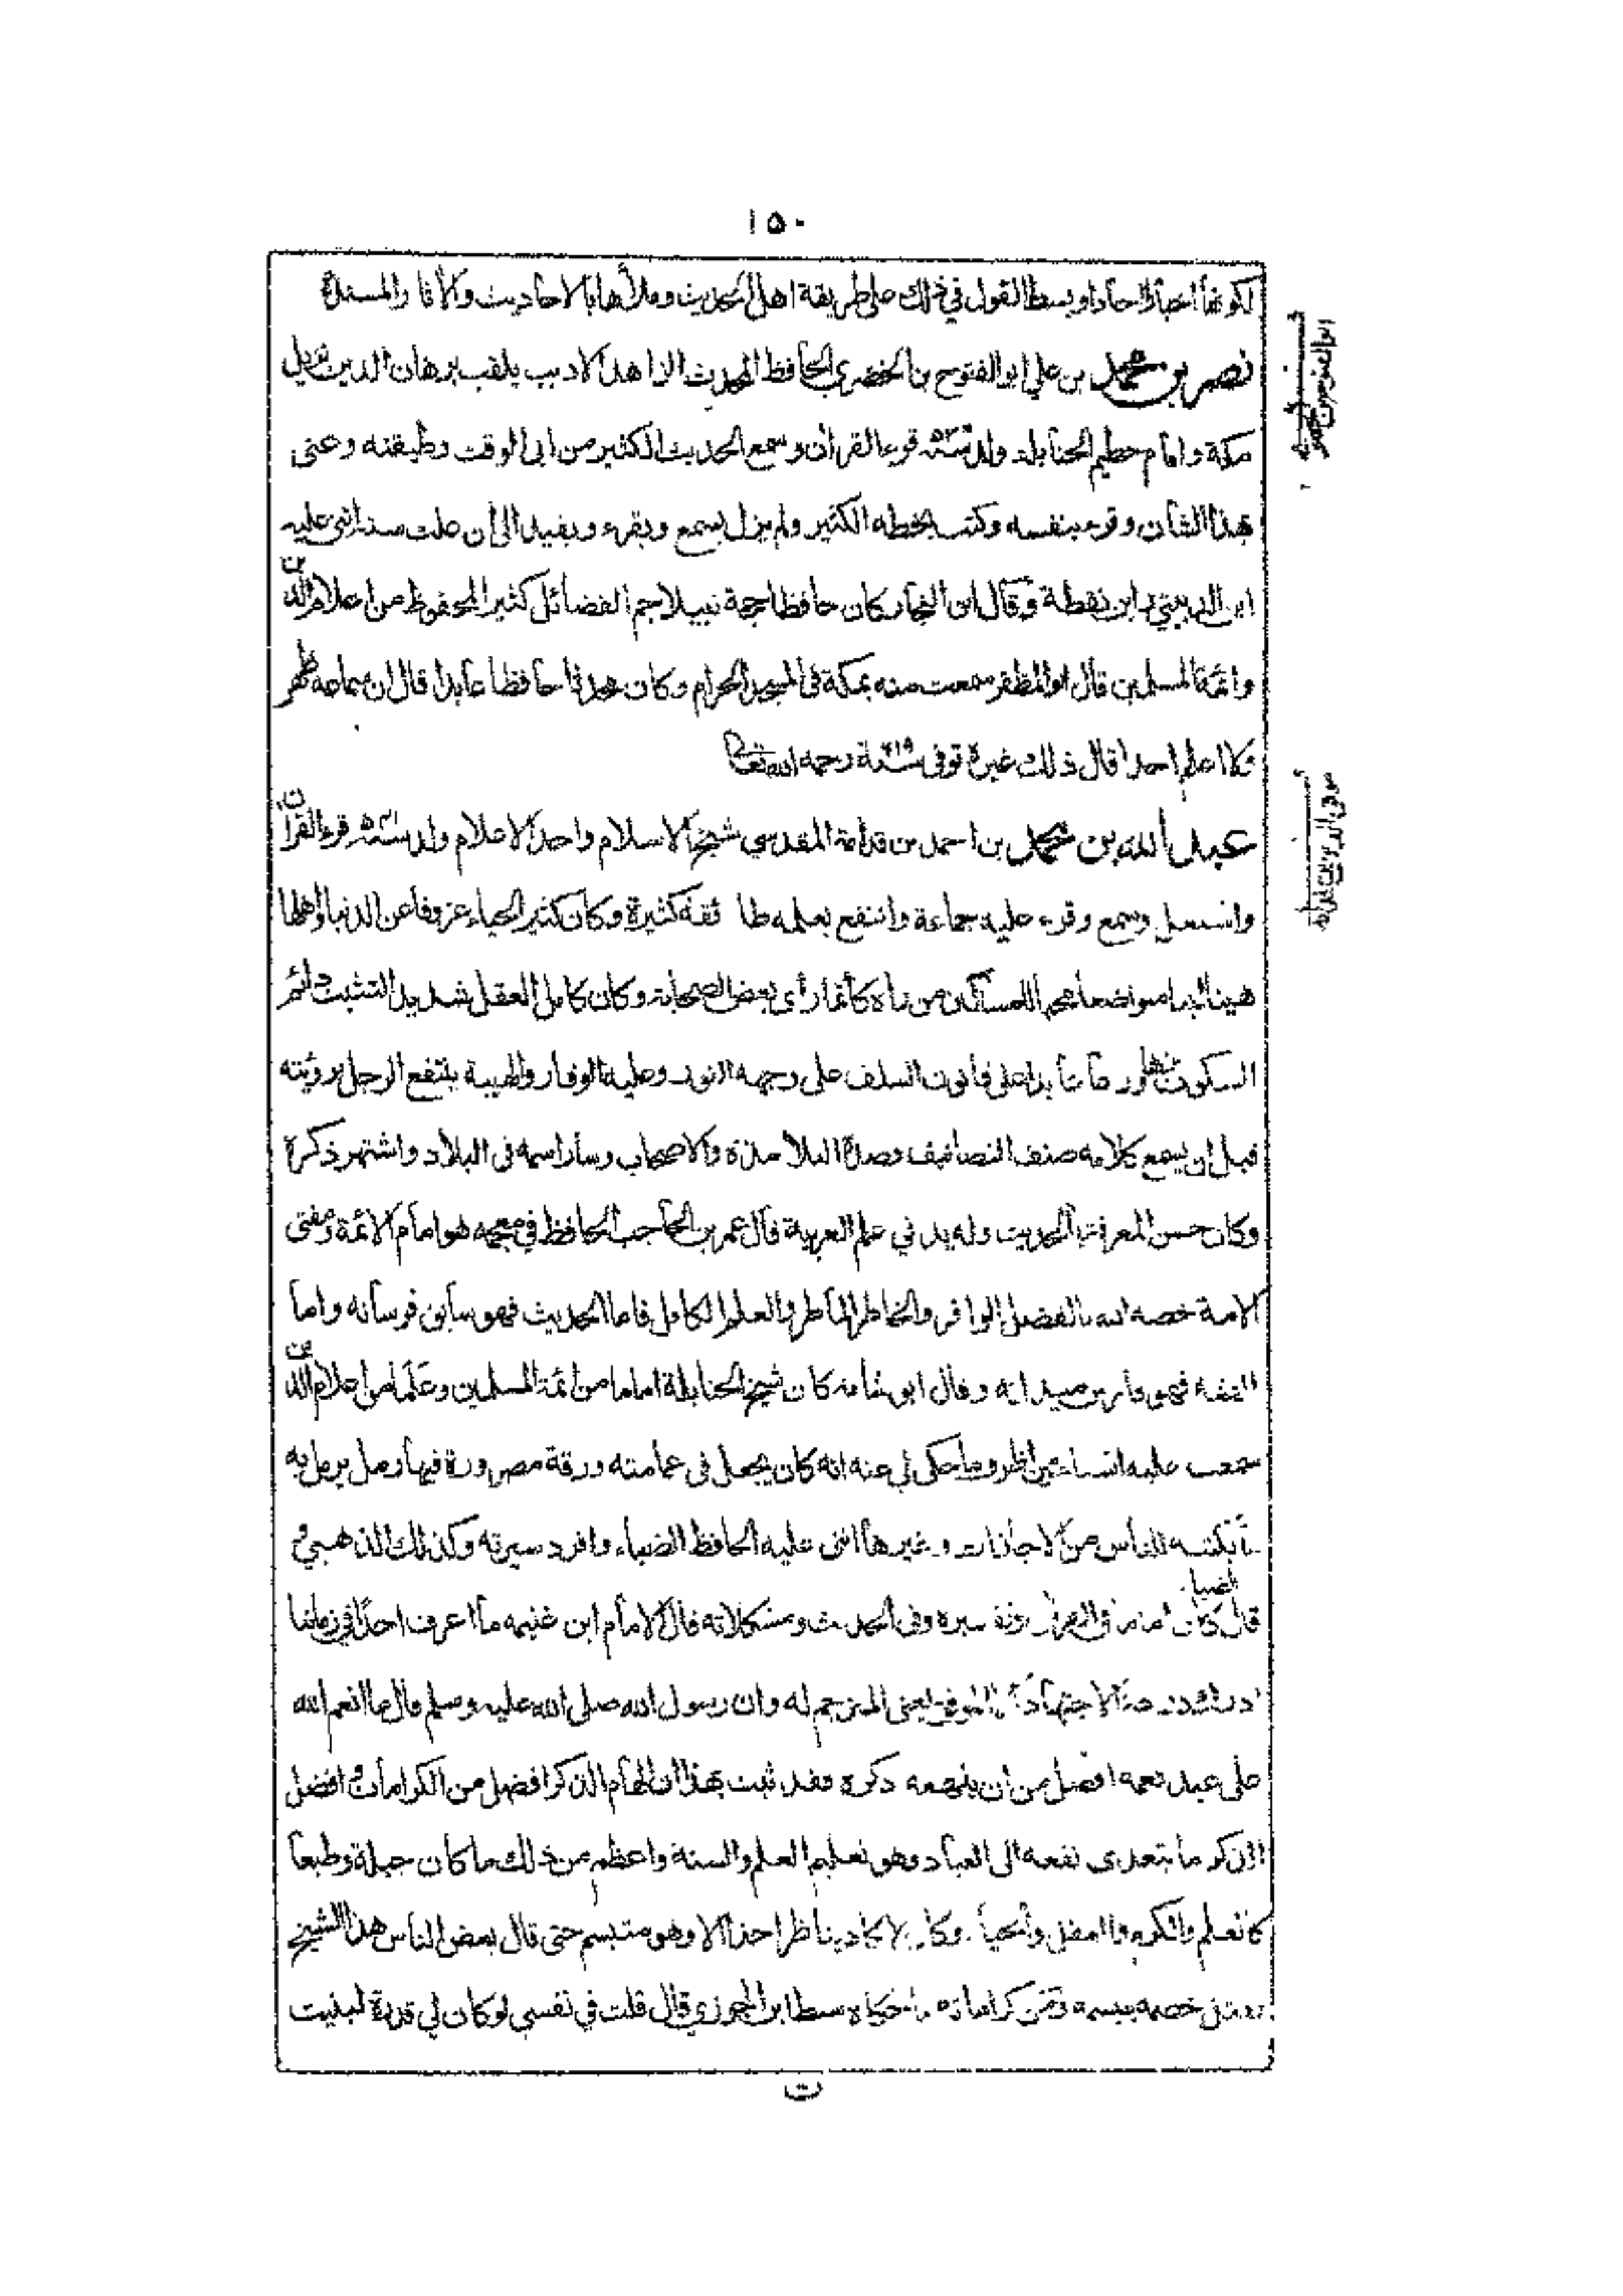 ١٥٠
لكونها اخبارا احادا وبسط القول في ذلك على طريقة اهل الحديث وملأها بالاحاديث والآثار المسندة
نصر بن محمد بن علي ابو الفتوح بن الحضري الحافظ المحدث الزاهد الاديب يلقب برهان الدين نزيل
مكة وامام حطيم الحنابلة ولد قرء القرآن وسمع الحديث الكثير من ابى الوقت وطبقته وعنى
بهذا الشان وقرء بنفسه وكتب بخطه الكثير ولم يزل يسمع ويقرء ويفيد الى ان علت سنه اثنى عليه
ابن الدبيثي وابن نقطة وقال ابن النجار كان حافظا حجة نبيلا جم الفضائل كثير المحفوظ من اعلام الدين
وائمة المسلمين قال ابو المظفر سمعت منه بمكة فى المسجد الحرام وكان محدثا حافظا عابدا قال ان سماعه ظهر
ولا اعلم احدا قال ذلك غيره توفى رحمه الله تعالى
عبد الله بن محمد بن احمد بن قدامة المقدسي شيخ الاسلام واحد الاعلام ولد قرء القرآن
واشتغل وسمع وقرء عليه جماعة وانتفع بعلمه طائفة كثيرة وكان كثير الحياء عزوفا عن الدنيا واهلها
هينا لينا متواضعا محبا للمساكين من رآه كأنما رأى بعض الصحابة وكان كامل العقل شديد التثبت دائم
السكوت على قانون السلف على وجهه النور وعليه الوقار والهيبة ينتفع الرجل برؤيته
قبل ان يسمع كلامه صنف التصانيف وصدة التلامذة والاصحاب وسار اسمه فى البلاد واشتهر ذكره
وكان حسن المعرفة بالحديث وله يد في علم العربية قال عمر بن الحاجب الحافظ في معجمه هو امام الائمة ومفتى
الامة خصه الله بالفضل الوافر والخاطر الماطر والعلم الكامل فاما الحديث فهو سابق فرسانه واما
الفقه فهو فارس ميدانه وقال ابو شامة كان شيخ الحنابلة اماما من ائمة المسلمين وعلما من اعلام الدين
سمعت عليه اشياء ومما حكى لي عنه انه كان يجعل فى عمامته ورقة مصرورة فيها رمل يرمل به
ما يكتبه للناس من الاجازات وغيرها اثنى عليه الحافظ الضياء وافرد سيرته وكذلك الذهبي و
قال الضياء كان وفى الحديث ومشكلاته قال الامام ابن غنيمه ما اعرف احدا في زماننا
ادرك درجة الاجتهاد الا الموفق يعنى المترجم له وان رسول الله صلى الله عليه وسلم قال ما انعم الله
على عبد نعمه افضل من ان يلهمه ذكره فقد ثبت بهذا ان الهام الذكر افضل من الكرامات وافضل
الذكر ما يتعدى نفعه الى العباد وهو تعليم العلم والسنة واعظم من ذلك ما كان جبلة وطبعا
كالعلم والكرم والعقل والحياء وكان لا يكاد يناظر احدا الا وهو متبسم حتى قال بعض الناس هذا الشيخ
يقتل خصمه بتبسمه ومن كراماته ما حكاه سبط ابن الجوزي قال قلت في نفسي لو كان لي قدرة لبنيت
ت